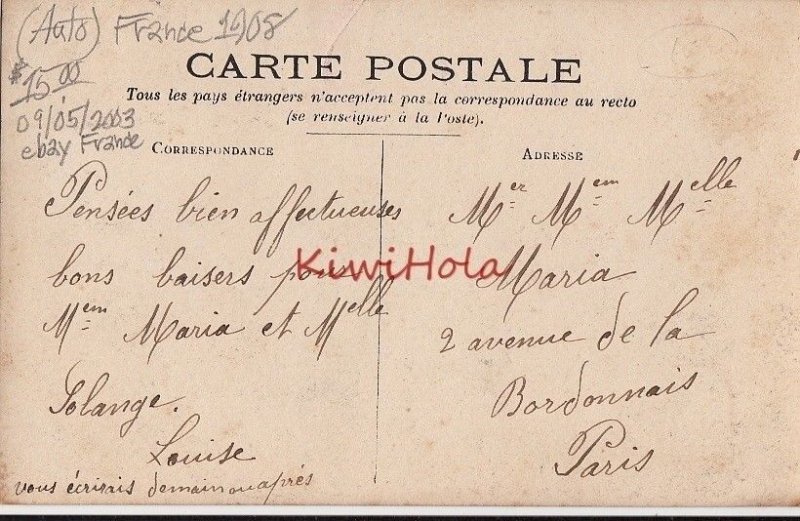 (Auto) France 1908
$15.00
09/05/2003
ebay France
CARTE POSTALE
Tous les pays étrangers n'acceptent pas la correspondance au recto
(se renseigner à la Poste).
CORRESPONDANCE
Pensées bien affectueuses
bons baisers pour
Mem Maria et Melle
Solange.
Louise
vous écrirais demain ou après
ADRESSE
Mer Mem Melle
Maria
2 avenue de la
Bordonnais
Paris
KiwiHola